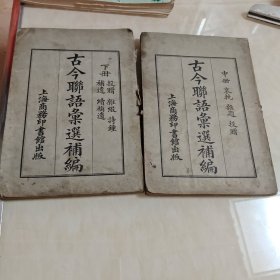 古今聯語彙選補編
下册
投贈 雜綴 諧鐘
補遺 續補遺
上海商務印書館出版
古今聯語彙選補編
中册 哀輓 雜題 投贈
上海商務印書館出版